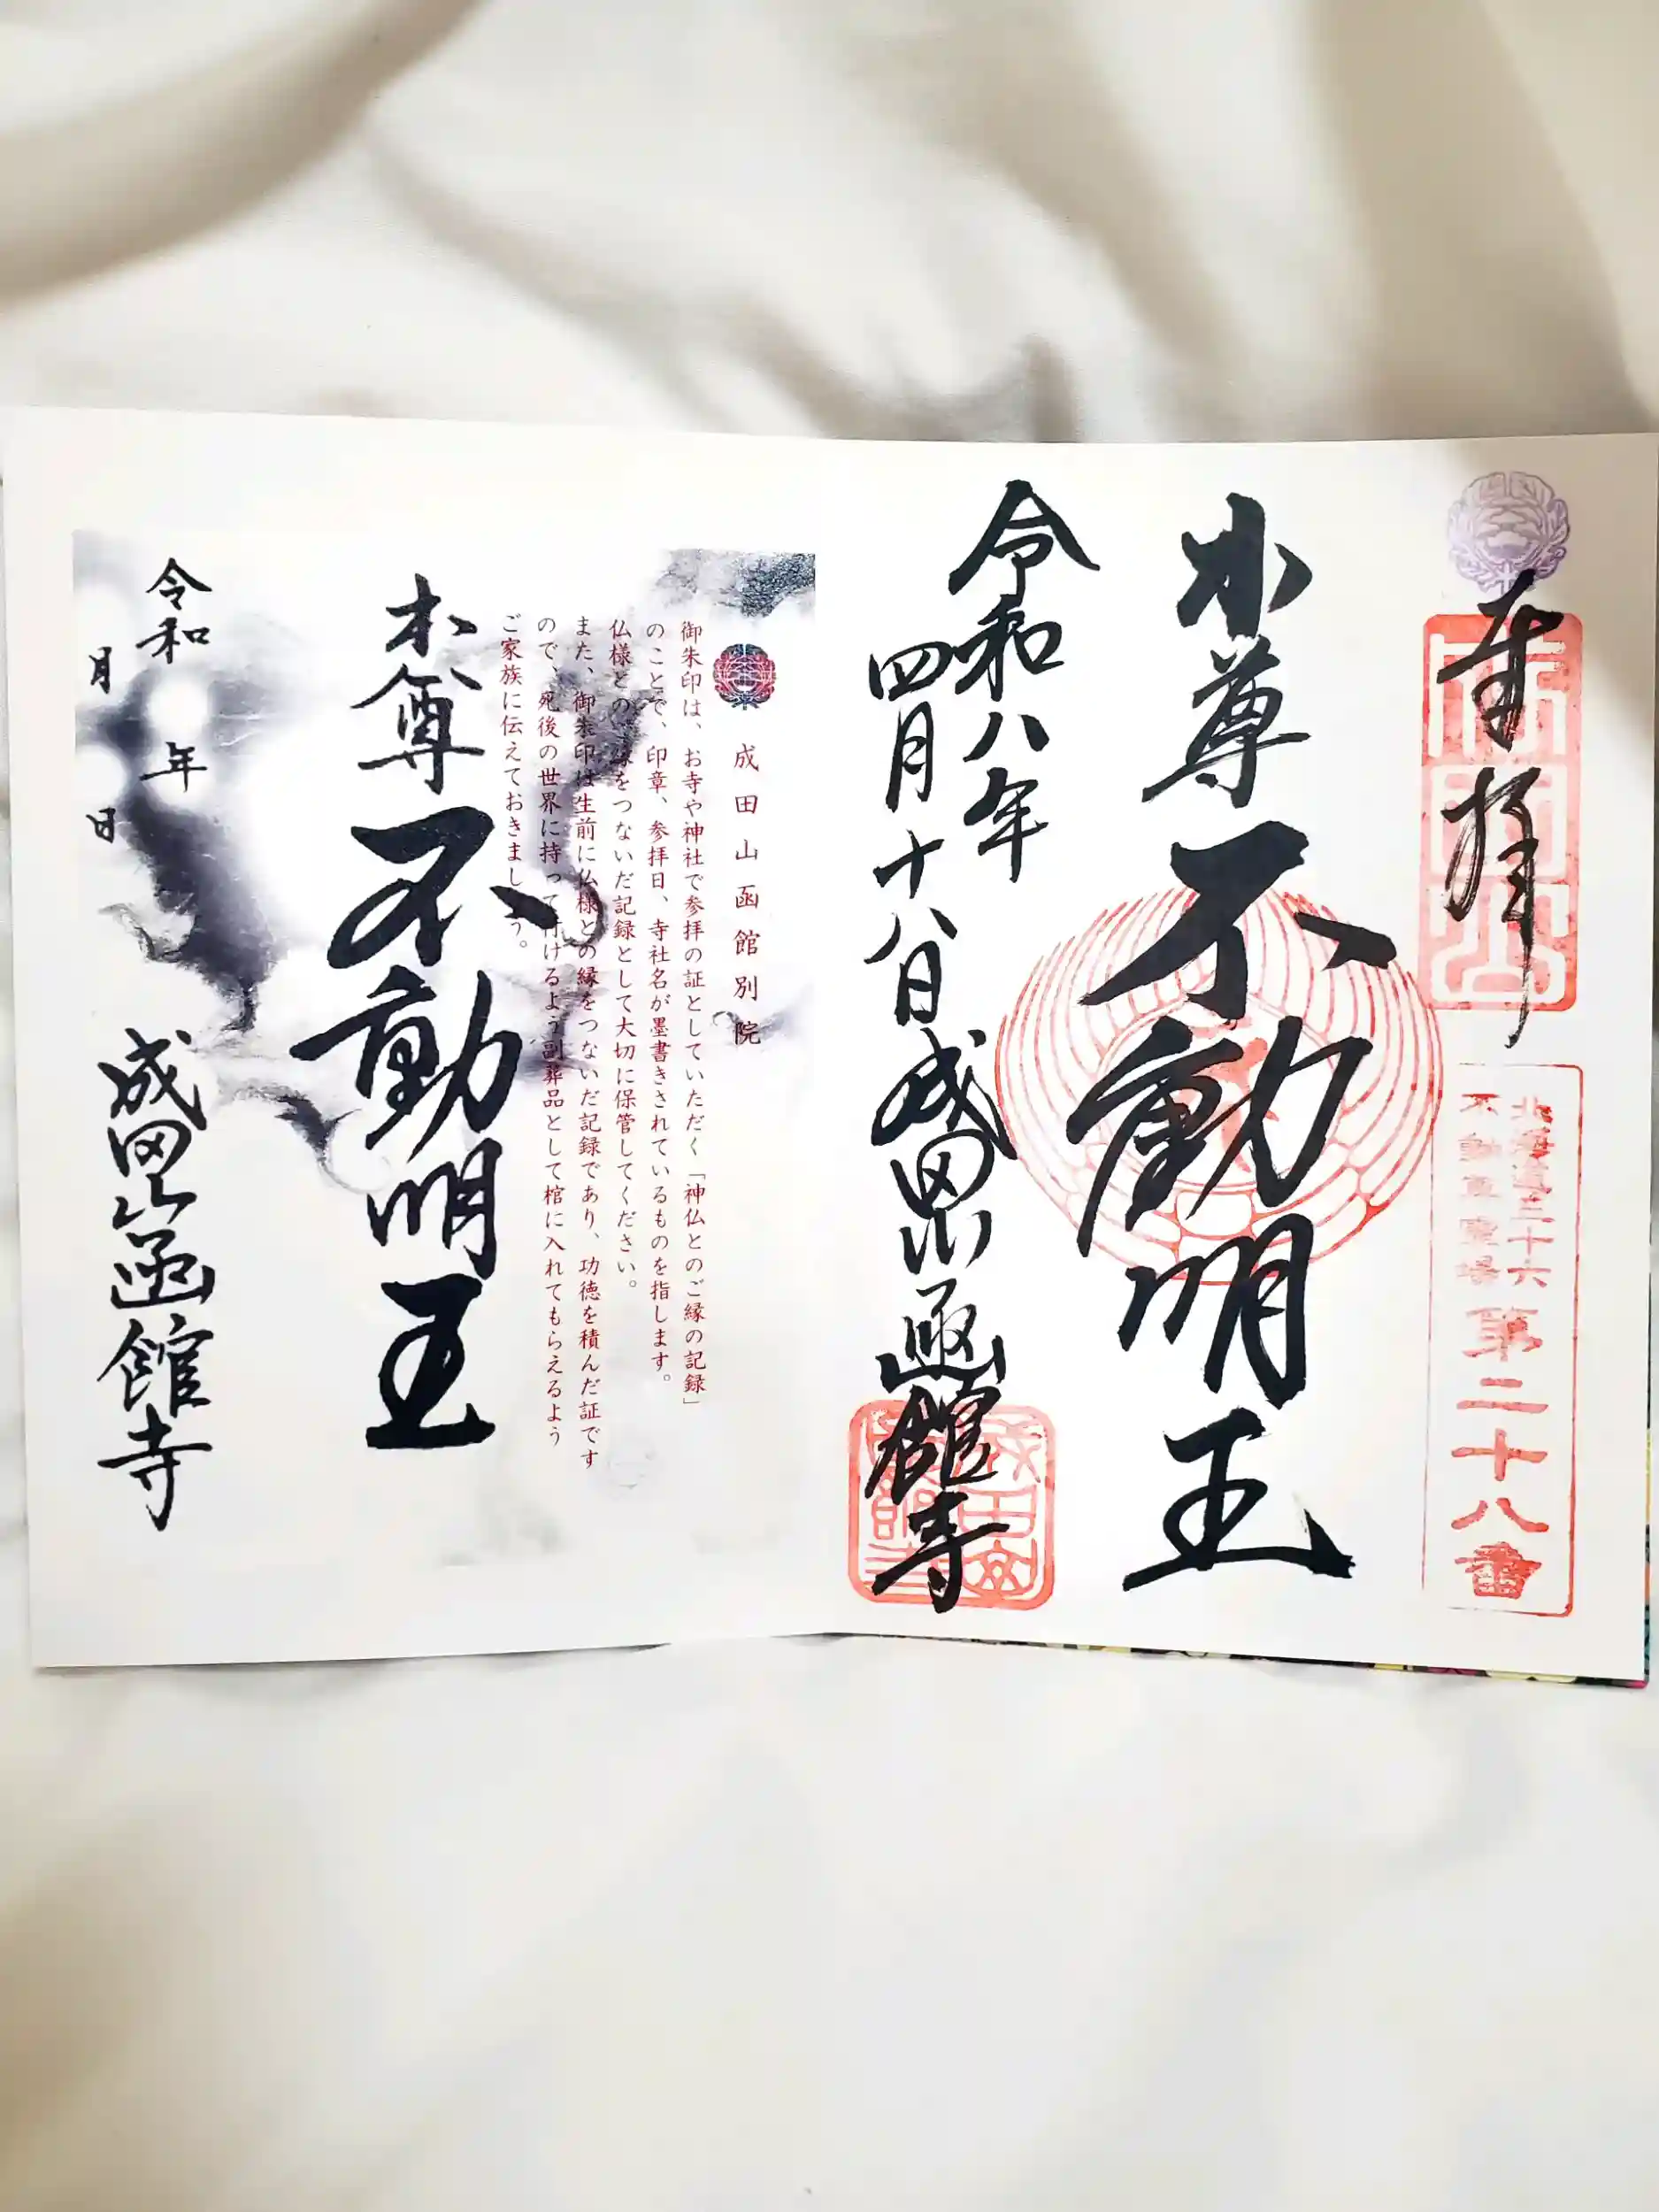 奉拝
北海道三十六
不動尊霊場
第二十八番
本尊 不動明王
令和八年
四月十八日 成田山函館寺
成田山函館別院
御朱印は、お寺や神社で参拝の証としていただく「神仏とのご縁の記録」
のことで、印章、参拝日、寺社名が墨書きされているものを指します。
仏様とのご縁をつないだ記録として大切に保管してください。
また、御朱印は生前に仏様との縁をつないだ記録であり、功徳を積んだ証です
ので、死後の世界に持って行けるよう副葬品として棺に入れてもらえるよう
ご家族に伝えておきましょう。
本尊 不動明王
令和 年
月 日
成田山函館寺